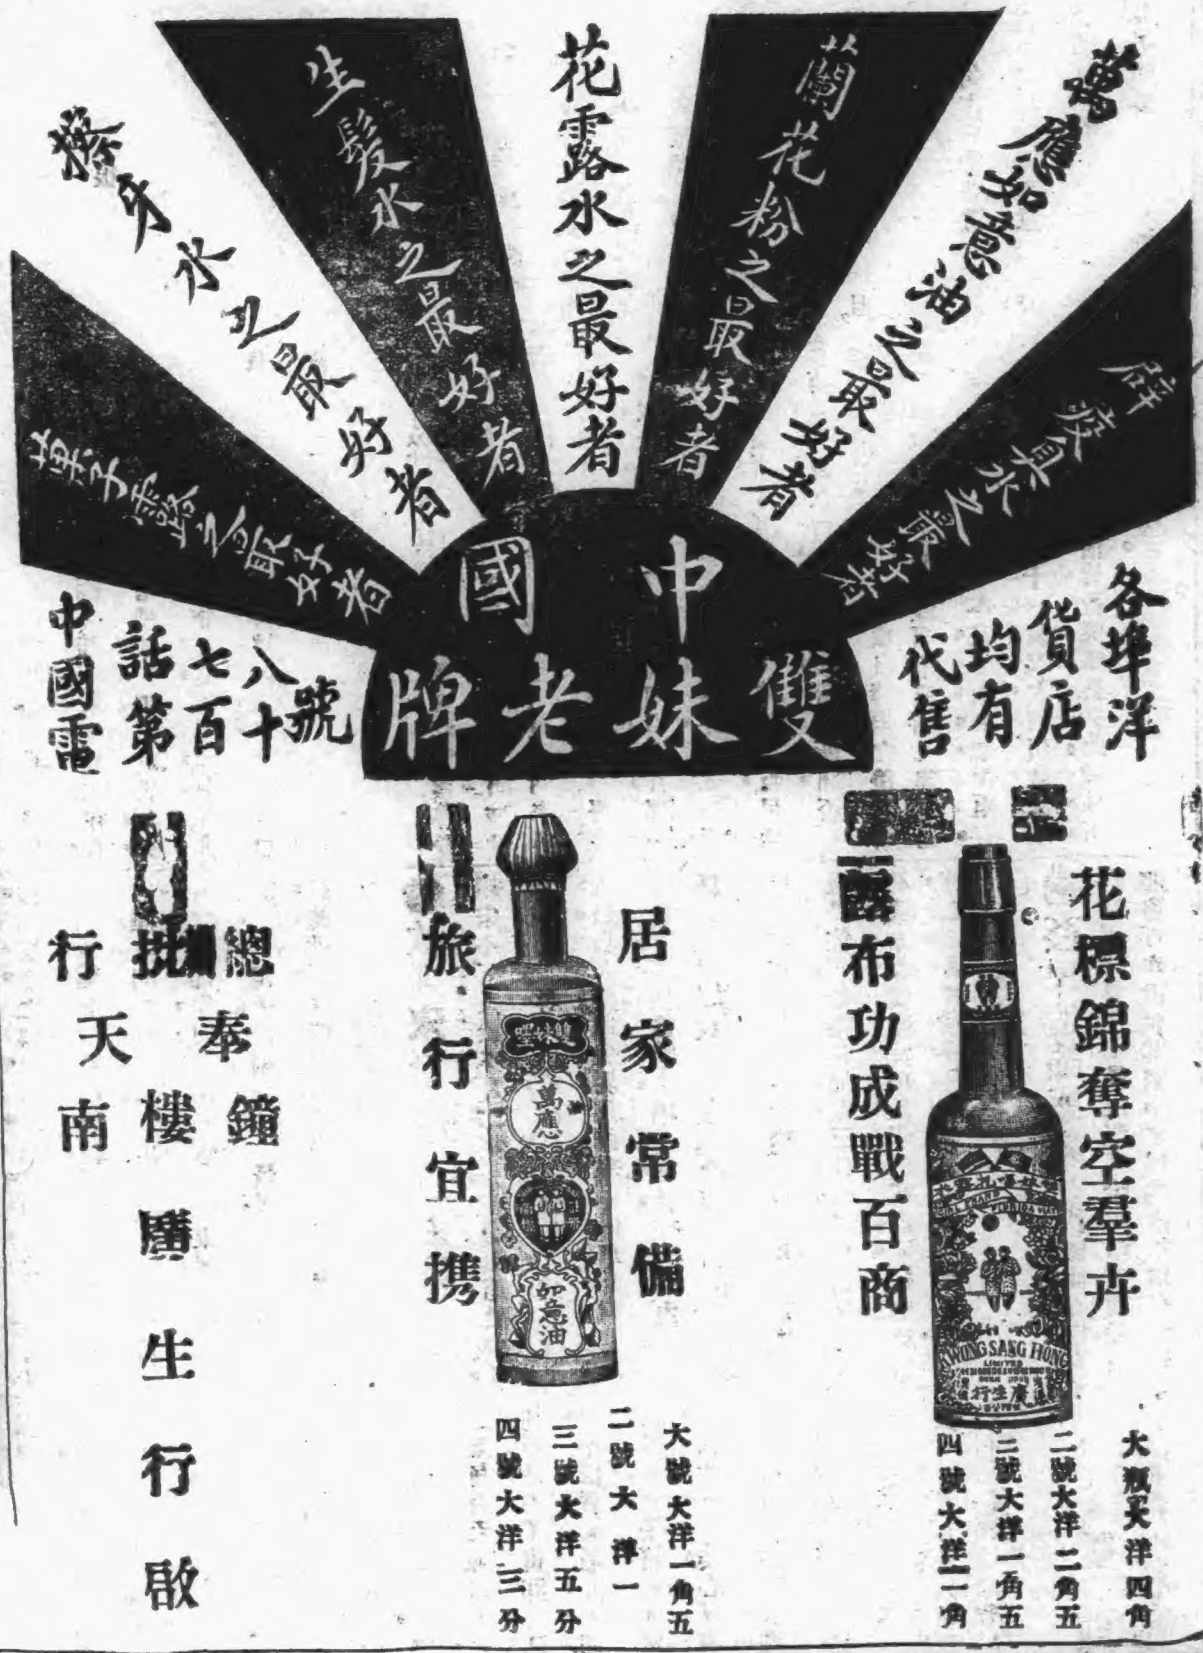 辟疫臭水之最好者
萬應如意油之最好者
蘭花粉之最好者
花露水之最好者
生髮水之最好者
擦牙水之最好者
菓子露之最好者
中國
雙妹老牌
各埠洋
貨店
均有
代售
中國電
話第
七百
八十
號
花標錦奪空羣卉
露布功成戰百商
KWONG SANG HONG
LIMITED
廣生行
大瓶大洋四角
二號大洋二角五
三號大洋一角五
四號大洋一角
居家常備
旅行宜携
雙妹嘜
萬應
如意油
大號大洋一角五
二號大洋一
三號大洋五分
四號大洋三分
總批行
奉天
鐘樓南
廣生行啟